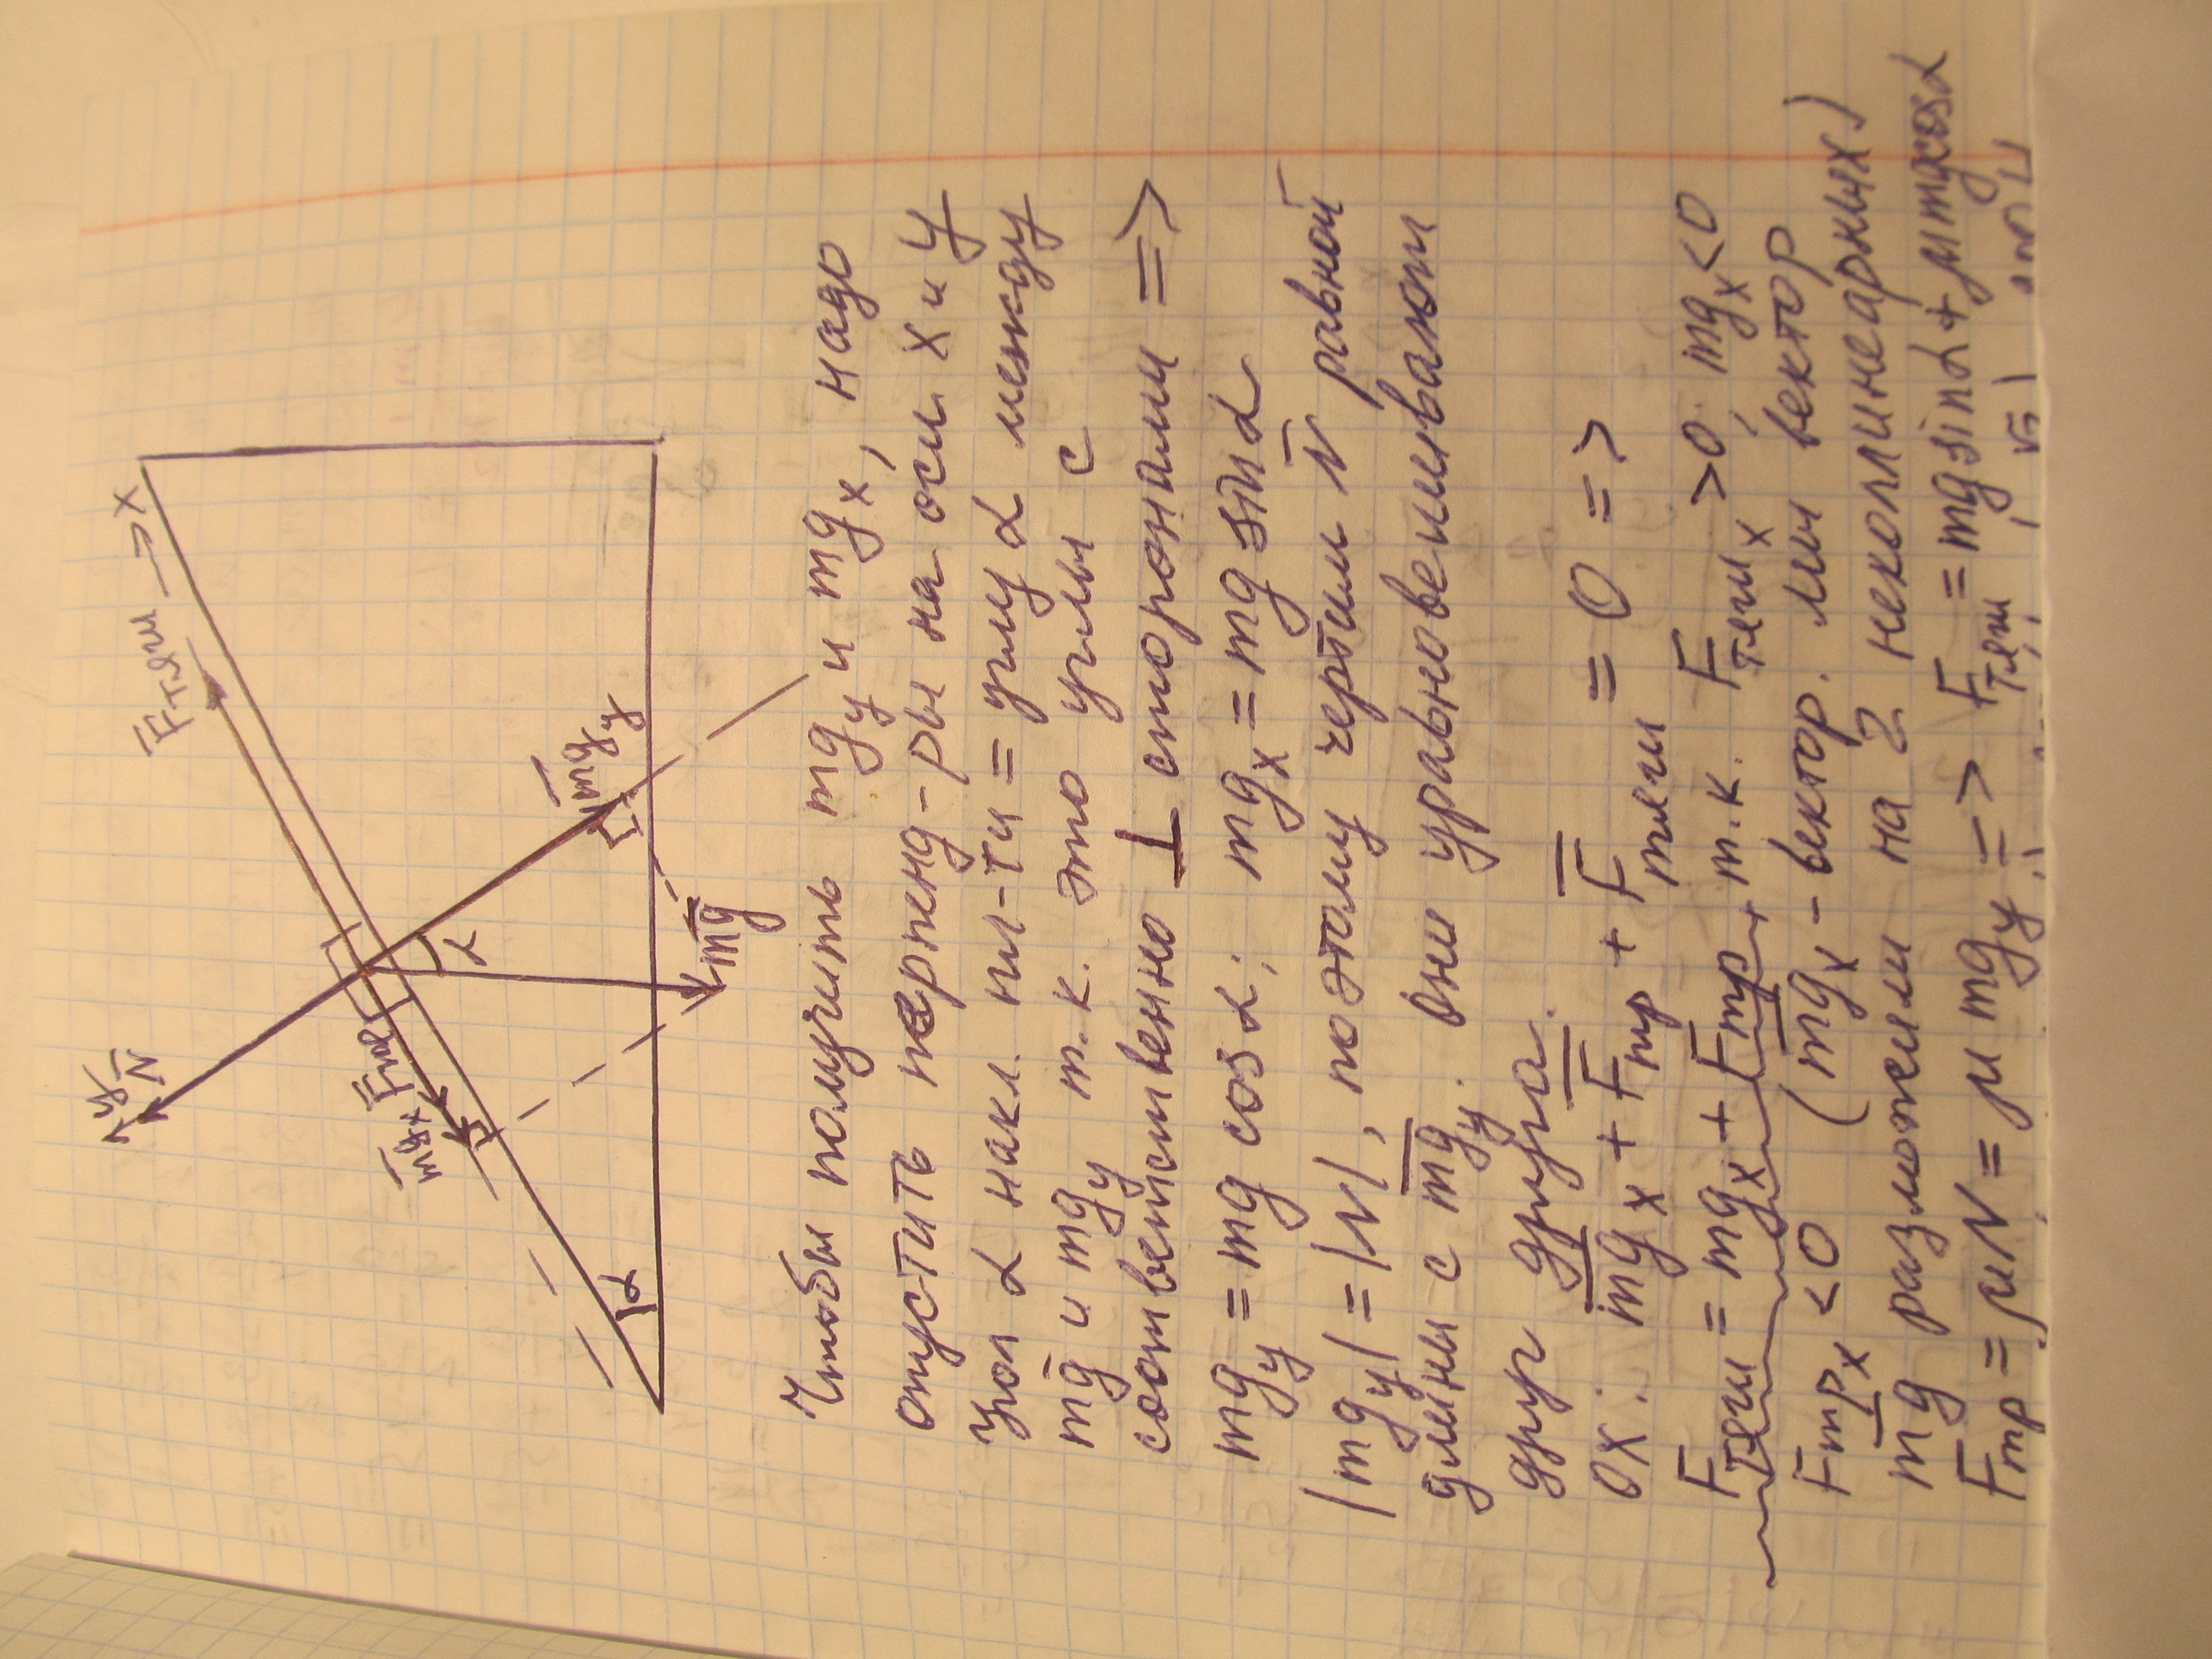 y
N̅
F̅тяги → x
F̅тр
m̅g̅x
α
m̅g̅y
α
m̅g̅
Чтобы получить mgy и mgx, надо
опустить перпенд-ры на оси x и y
угол α накл. пл-ти = углу α между
m̅g̅ и mgy т.к. это углы с
соответственно ⊥ сторонами =>
mgy = mg cos α; mgx = mg sin α
|mgy| = |N|, поэтому чертим N̅ равной
длины с m̅g̅y. Они уравновешивают
друг друга.
ox: m̅g̅x + F̅тр + F̅тяги = 0 =>
Fтяги = mgx + Fтр, т.к. F̅тягиx > 0, mgx < 0
Fтрx < 0 (m̅g̅x - вектор. мы вектор
m̅g̅ разложили на 2 неколлинеарных)
Fтр = μN = μmgy => Fтяги = mg sin α + μmg cos α